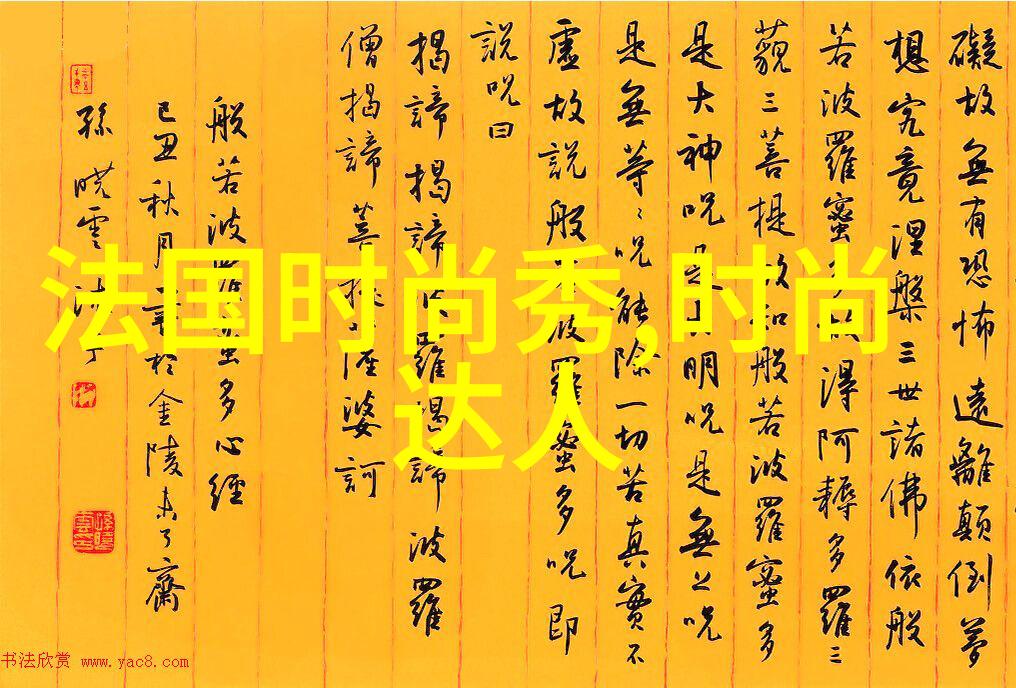 礙故無有恐怖遠離顛倒夢
想究竟涅槃三世諸佛依般
若波羅蜜多故得阿耨多羅三
藐三菩提故知般若波羅蜜多
是大神呪是大明呪是無上呪
是無等〻呪能除一切苦真實不
虛故說般若波羅蜜多呪即
說呪曰
揭諦揭諦波羅揭諦波羅
僧揭諦菩提薩婆訶
般若波羅蜜多心經
己丑秋月書於金陵未了齋
孫曉雲沐手
法国时尚秀,时尚
达人
书法欣赏 www.yac8.com